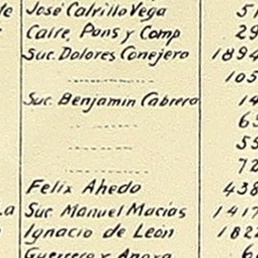 José Calvillo Vega 51
Calre, Pons y Comp 29
Suc. Dolores Conejero 1894
105
Suc. Benjamin Cabrera 14
63
55
72
Felix Ahedo 438
Suc. Manuel Macías 1417
Ignacio de León 1822
Guerrero y